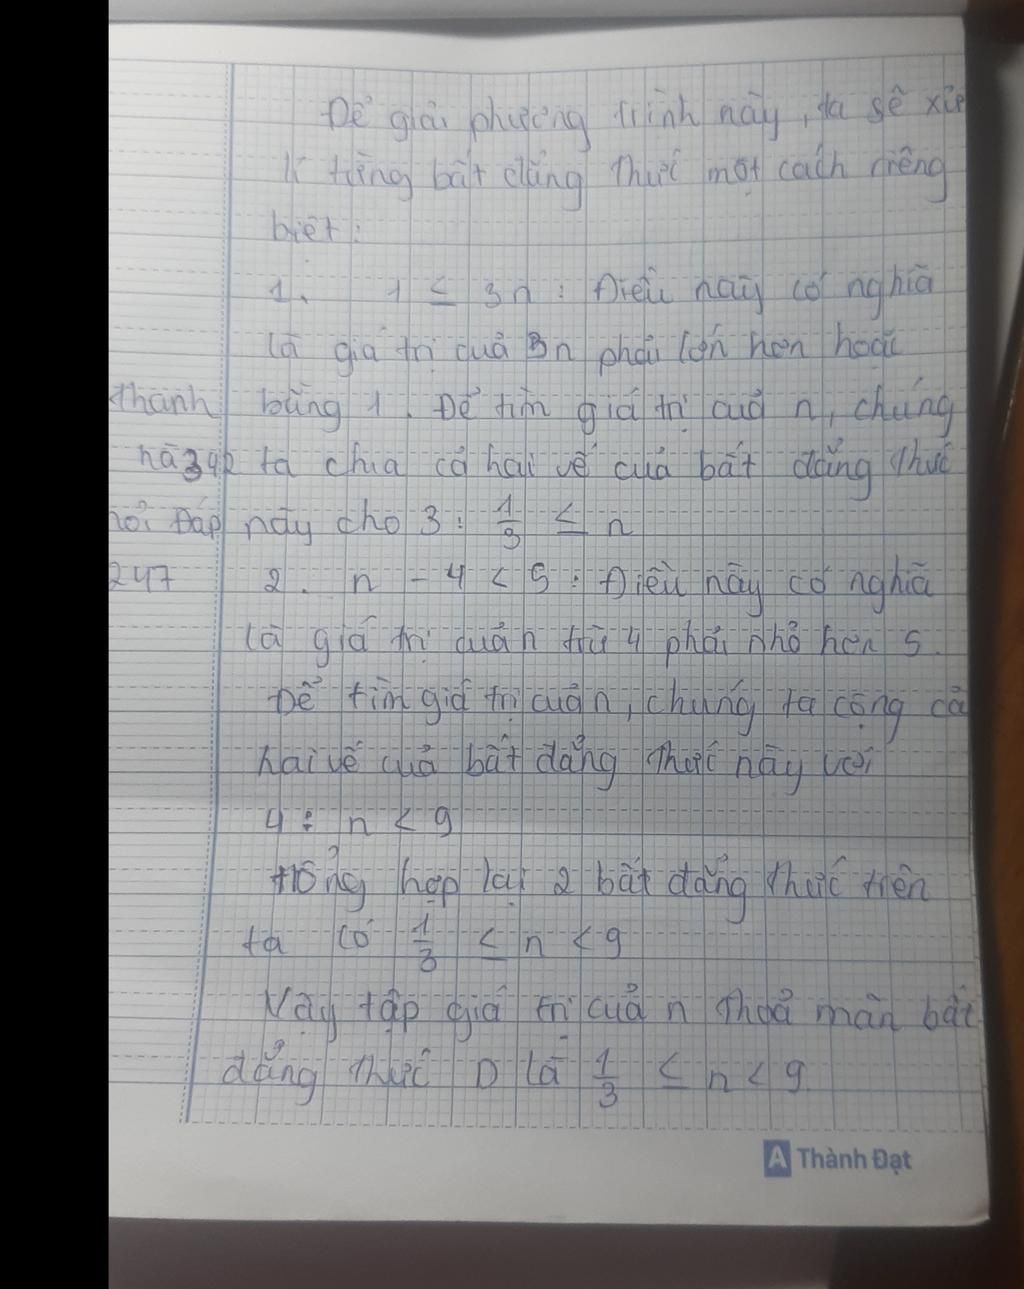 Để giải phương trình này, ta sẽ xử
lí từng bất đẳng thức một cách riêng
biệt:
1. 1 ≤ 3n : Điều này có nghĩa
là giá trị của 3n phải lớn hơn hoặc
thanh bằng 1. Để tìm giá trị của n, chúng
hà342 ta chia cả hai vế của bất đẳng thức
hỏi Đáp này cho 3 : 1/3 ≤ n
247 2. n - 4 < 5 : Điều này có nghĩa
là giá trị của n trừ 4 phải nhỏ hơn 5.
Để tìm giá trị của n, chúng ta cộng cả
hai vế của bất đẳng thức này với
4 : n < 9
tổng hợp lại 2 bất đẳng thức trên
ta có 1/3 ≤ n < 9
Vậy tập giá trị của n thoả mãn bất
đẳng thức D là 1/3 ≤ n < 9
A Thành Đạt